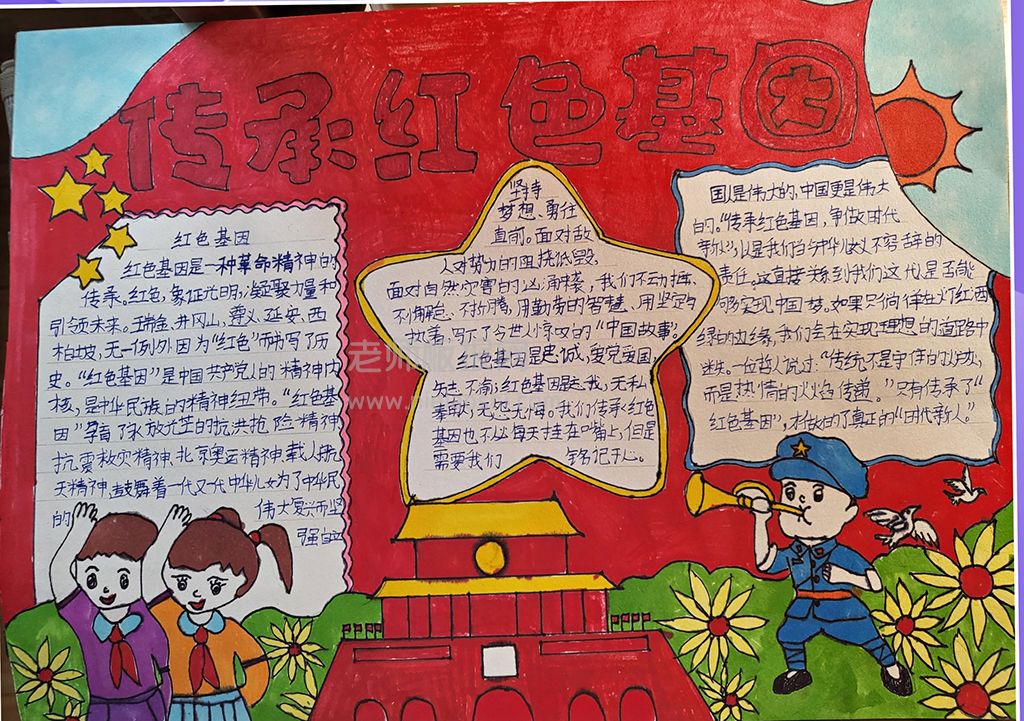 传承红色基因
红色基因
红色基因是一种革命精神的
传承。红色，象征光明，凝聚力量和
引领未来。瑞金、井冈山，遵义、延安、西
柏坡，无一例外因为“红色”而书写了历
史。“红色基因”是中国共产党人的精神内
核，是中华民族的精神纽带。“红色基
因”孕育了永放光芒的抗洪抢险精神
抗震救灾精神、北京奥运精神载人航
天精神，鼓舞着一代又一代中华儿女为了中华民
的 伟大复兴而坚
强
坚持
梦想、勇往
直前。面对敌
人对势力的阻挠诋毁，
面对自然灾害的汹涌袭，我们不动摇、
不懈怠、不折腾，用勤劳的智慧、用坚定的
执着，写下了令世人惊叹的“中国故事”。
红色基因是忠诚，爱党爱国，
矢志不渝；红色基因是忘我，无私
奉献，无怨无悔。我们传承红色
基因也不必每天挂在嘴上，但是
需要我们 铭记于心。
国是伟大的，中国更是伟大
的。“传承红色基因，争做时代
新人”，是我们的中华儿女义不容辞的
责任。这直接关系到我们这代是否能
够实现中国梦。如果只徜徉在灯红酒
绿的边缘，我们会在实现理想的道路中
迷失。一位哲人说过：“传统不是守住的炉灰，
而是热情的火焰传递。”只有传承了“
红色基因”，才做的了真正的“时代新人”。